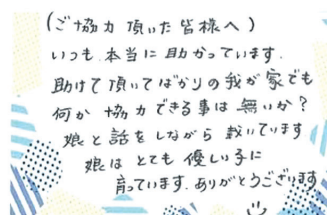 (ご協力頂いた皆様へ)
いつも.本当に助かっています.
助けて頂いてばかりの我が家でも
何か協力できる事は無いか?
娘と話をしながら 裁いています
娘はとても優しい子に
育っています.ありがとうございます